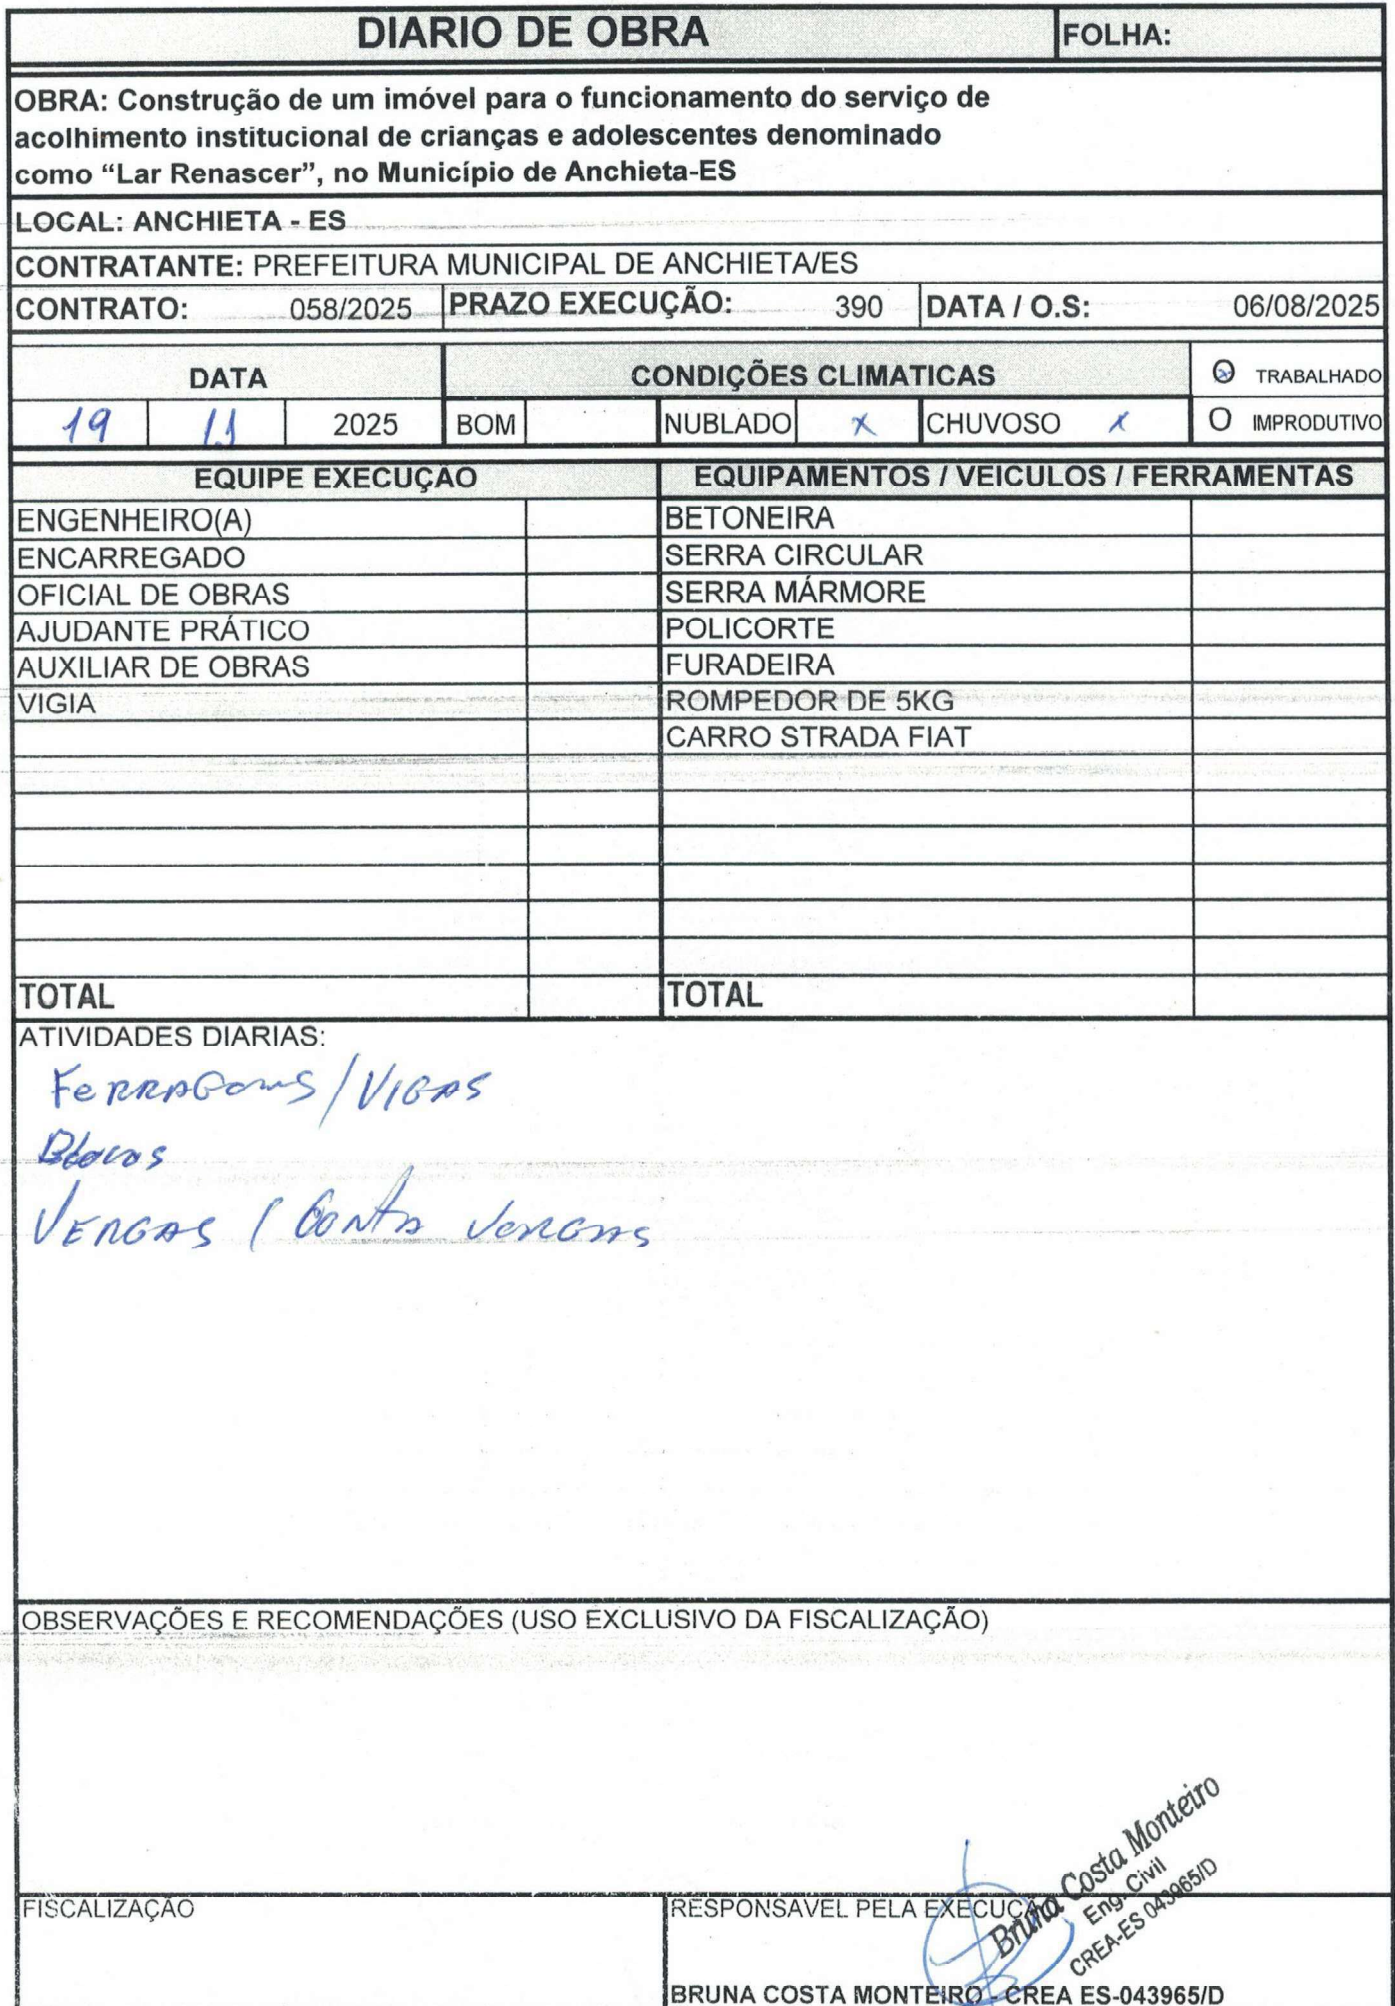 DIARIO DE OBRA
FOLHA:
OBRA: Construção de um imóvel para o funcionamento do serviço de
acolhimento institucional de crianças e adolescentes denominado
como “Lar Renascer”, no Município de Anchieta-ES
LOCAL: ANCHIETA - ES
CONTRATANTE: PREFEITURA MUNICIPAL DE ANCHIETA/ES
CONTRATO: 058/2025 PRAZO EXECUÇÃO: 390 DATA / O.S: 06/08/2025
DATA CONDIÇÕES CLIMATICAS X TRABALHADO
19 11 2025 BOM NUBLADO X CHUVOSO X O IMPRODUTIVO
EQUIPE EXECUÇAO EQUIPAMENTOS / VEICULOS / FERRAMENTAS
ENGENHEIRO(A) BETONEIRA
ENCARREGADO SERRA CIRCULAR
OFICIAL DE OBRAS SERRA MÁRMORE
AJUDANTE PRÁTICO POLICORTE
AUXILIAR DE OBRAS FURADEIRA
VIGIA ROMPEDOR DE 5KG
CARRO STRADA FIAT
TOTAL TOTAL
ATIVIDADES DIARIAS:
FERRAGENS / VIGAS
Blocos
VERGAS / Conta VERGAS
OBSERVAÇÕES E RECOMENDAÇÕES (USO EXCLUSIVO DA FISCALIZAÇÃO)
FISCALIZAÇÃO
RESPONSAVEL PELA EXECUÇÃO
Bruna Costa Monteiro
Eng. Civil
CREA-ES 043965/D
BRUNA COSTA MONTEIRO - CREA ES-043965/D